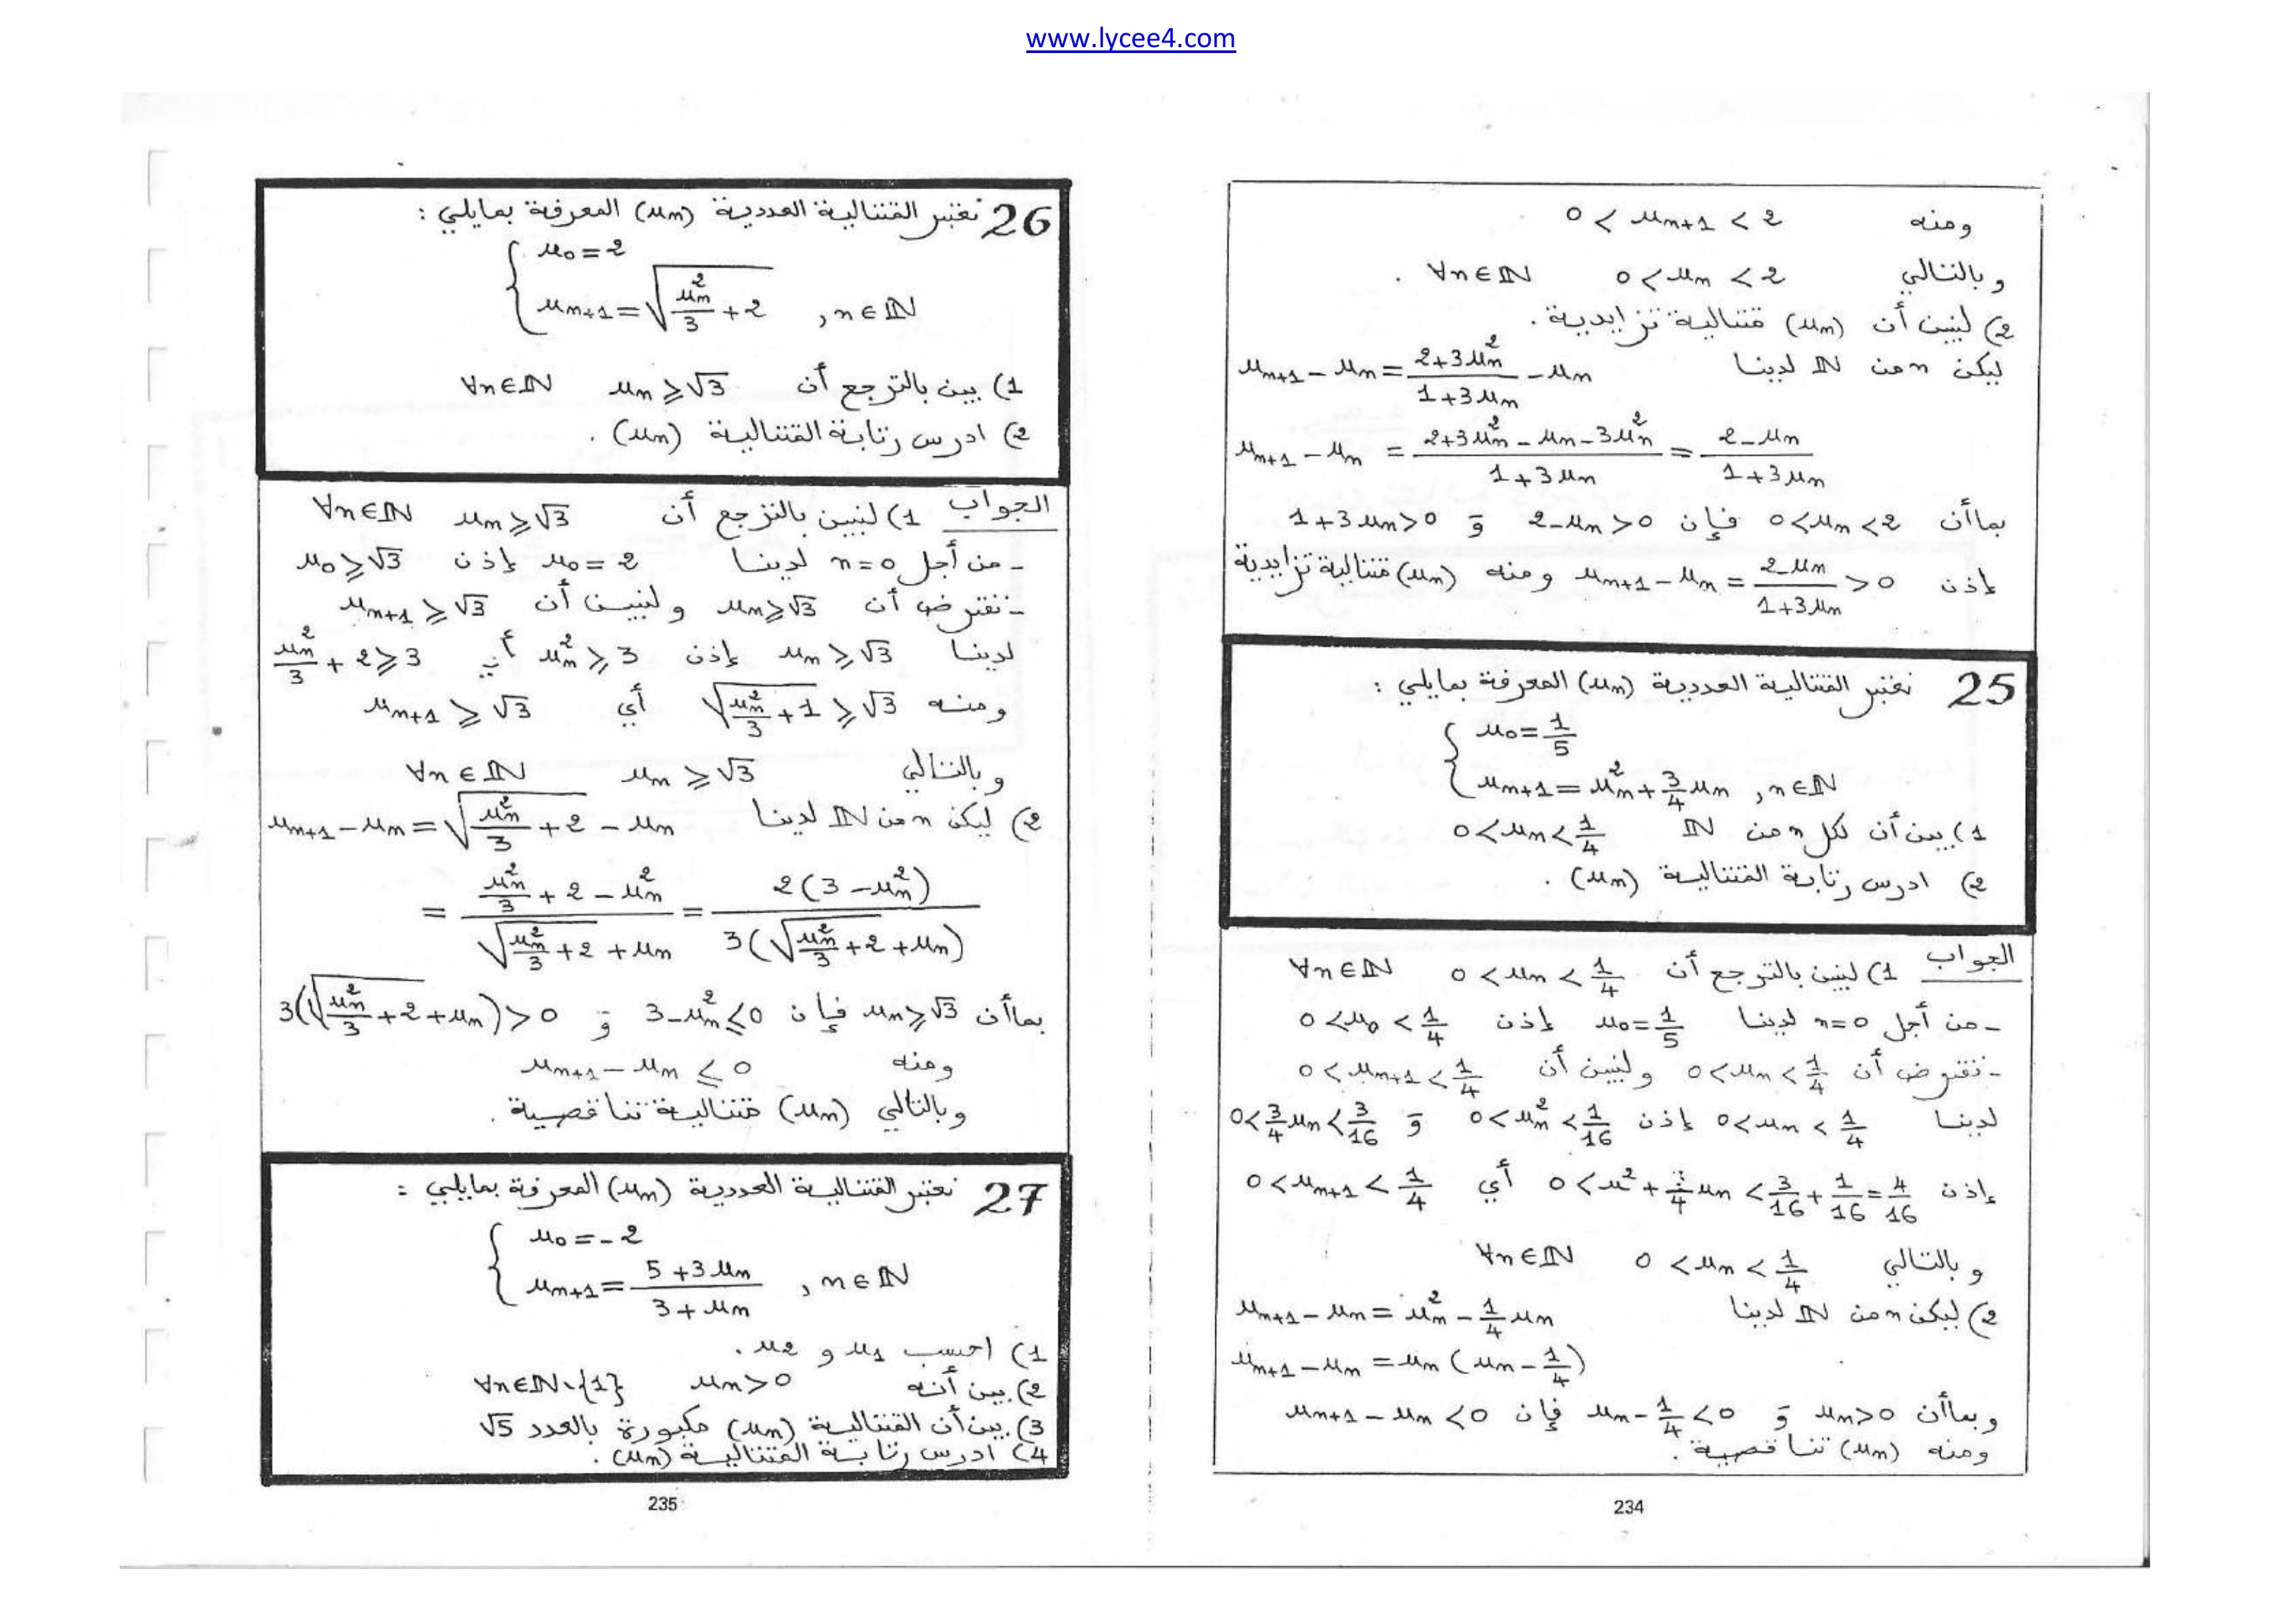 www.lycee4.com
ومنه 0 < u_{n+1} < 2
وبالتالي 0 < u_n < 2 ∀n∈ℕ .
2) لنبين أن (u_n) متتالية تزايدية .
ليكن n من ℕ لدينا u_{n+1} - u_n = \frac{2+3u_n^2}{1+3u_n} - u_n
u_{n+1} - u_n = \frac{2+3u_n^2 - u_n - 3u_n^2}{1+3u_n} = \frac{2-u_n}{1+3u_n}
بما أن 0 < u_n < 2 فإن 2-u_n > 0 و 1+3u_n > 0
إذن u_{n+1} - u_n = \frac{2-u_n}{1+3u_n} > 0 ومنه (u_n) متتالية تزايدية
25 نعتبر المتتالية العددية (u_n) المعرفة بمايلي :
{ u_0 = \frac{1}{5}
u_{n+1} = u_n^2 + \frac{3}{4}u_n , n∈ℕ
1) بين أن لكل n من ℕ 0 < u_n < \frac{1}{4}
2) ادرس رتابة المتتالية (u_n) .
الجواب 1) لنبين بالترجع أن 0 < u_n < \frac{1}{4} ∀n∈ℕ
- من أجل n=0 لدينا u_0 = \frac{1}{5} إذن 0 < u_0 < \frac{1}{4}
- نفترض أن 0 < u_n < \frac{1}{4} ولنبين أن 0 < u_{n+1} < \frac{1}{4}
لدينا 0 < u_n < \frac{1}{4} إذن 0 < u_n^2 < \frac{1}{16} و 0 < \frac{3}{4}u_n < \frac{3}{16}
إذن 0 < u^2 + \frac{3}{4}u_n < \frac{3}{16} + \frac{1}{16} = \frac{4}{16} أي 0 < u_{n+1} < \frac{1}{4}
وبالتالي 0 < u_n < \frac{1}{4} ∀n∈ℕ
2) ليكن n من ℕ لدينا u_{n+1} - u_n = u_n^2 - \frac{1}{4}u_n
u_{n+1} - u_n = u_n (u_n - \frac{1}{4})
وبما أن u_n > 0 و u_n - \frac{1}{4} < 0 فإن u_{n+1} - u_n < 0
ومنه (u_n) تناقصية .
234
26 نعتبر المتتالية العددية (u_n) المعرفة بمايلي :
{ u_0 = 2
u_{n+1} = \sqrt{\frac{u_n^2}{3} + 2} , n∈ℕ
1) بين بالترجع أن u_n ⩾ √3 ∀n∈ℕ
2) ادرس رتابة المتتالية (u_n) .
الجواب 1) لنبين بالترجع أن u_n ⩾ √3 ∀n∈ℕ
- من أجل n=0 لدينا u_0 = 2 إذن u_0 ⩾ √3
- نفترض أن u_n ⩾ √3 ولنبين أن u_{n+1} ⩾ √3
لدينا u_n ⩾ √3 إذن u_n^2 ⩾ 3 أي \frac{u_n^2}{3} + 2 ⩾ 3
ومنه \sqrt{\frac{u_n^2}{3} + 1} ⩾ √3 أي u_{n+1} ⩾ √3
وبالتالي u_n ⩾ √3 ∀n∈ℕ
2) ليكن n من ℕ لدينا u_{n+1} - u_n = \sqrt{\frac{u_n^2}{3} + 2} - u_n
= \frac{\frac{u_n^2}{3} + 2 - u_n^2}{\sqrt{\frac{u_n^2}{3} + 2} + u_n} = \frac{2(3 - u_n^2)}{3(\sqrt{\frac{u_n^2}{3} + 2} + u_n)}
بما أن u_n ⩾ √3 فإن 3 - u_n^2 ⩽ 0 و 3(\sqrt{\frac{u_n^2}{3} + 2} + u_n) > 0
ومنه u_{n+1} - u_n ⩽ 0
وبالتالي (u_n) متتالية تناقصية .
27 نعتبر المتتالية العددية (u_n) المعرفة بمايلي :
{ u_0 = -2
u_{n+1} = \frac{5+3u_n}{3+u_n} , n∈ℕ
1) احسب u_1 و u_2 .
2) بين أنه u_n > 0 ∀n∈ℕ\{1}
3) بين أن المتتالية (u_n) مكبورة بالعدد √5
4) ادرس رتابة المتتالية (u_n) .
235